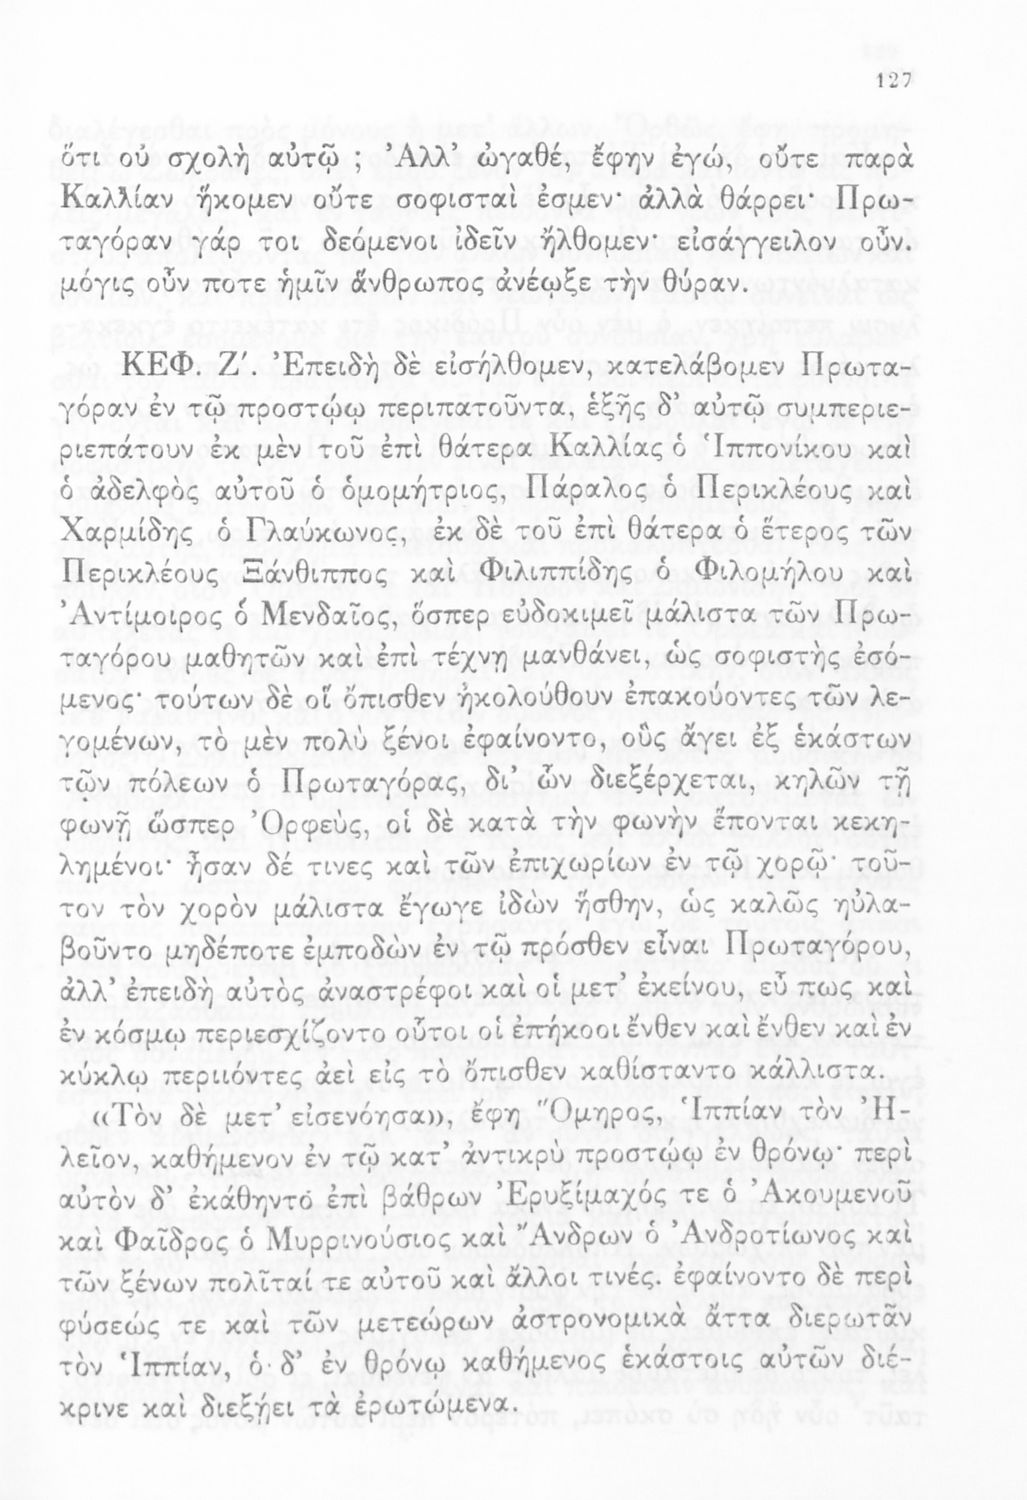 127
ὅτι οὐ σχολὴ αὐτῷ ; Ἀλλ’ ὠγαθέ, ἔφην ἐγώ, οὔτε παρὰ
Καλλίαν ἥκομεν οὔτε σοφισταὶ ἐσμεν· ἀλλὰ θάρρει· Πρω-
ταγόραν γάρ τοι δεόμενοι ἰδεῖν ἤλθομεν· εἰσάγγειλον οὖν.
μόγις οὖν ποτε ἡμῖν ἅνθρωπος ἀνέῳξε τὴν θύραν.
ΚΕΦ. Ζ'. Ἐπειδὴ δὲ εἰσήλθομεν, κατελάβομεν Πρωτα-
γόραν ἐν τῷ προστῴῳ περιπατοῦντα, ἑξῆς δ’ αὐτῷ συμπεριε-
ριεπάτουν ἐκ μὲν τοῦ ἐπὶ θάτερα Καλλίας ὁ Ἱππονίκου καὶ
ὁ ἀδελφὸς αὐτοῦ ὁ ὁμομήτριος, Πάραλος ὁ Περικλέους καὶ
Χαρμίδης ὁ Γλαύκωνος, ἐκ δὲ τοῦ ἐπὶ θάτερα ὁ ἕτερος τῶν
Περικλέους Ξάνθιππος καὶ Φιλιππίδης ὁ Φιλομήλου καὶ
Ἀντίμοιρος ὁ Μενδαῖος, ὅσπερ εὐδοκιμεῖ μάλιστα τῶν Πρω-
ταγόρου μαθητῶν καὶ ἐπὶ τέχνῃ μανθάνει, ὡς σοφιστὴς ἐσό-
μενος· τούτων δὲ οἵ ὄπισθεν ἠκολούθουν ἐπακούοντες τῶν λε-
γομένων, τὸ μὲν πολὺ ξένοι ἐφαίνοντο, οὓς ἄγει ἐξ ἑκάστων
τῶν πόλεων ὁ Πρωταγόρας, δι’ ὧν διεξέρχεται, κηλῶν τῇ
φωνῇ ὥσπερ Ὀρφεὺς, οἱ δὲ κατὰ τὴν φωνὴν ἕπονται κεκη-
λημένοι· ἦσαν δέ τινες καὶ τῶν ἐπιχωρίων ἐν τῷ χορῷ· τοῦ-
τον τὸν χορὸν μάλιστα ἔγωγε ἰδὼν ἥσθην, ὡς καλῶς ηὐλα-
βοῦντο μηδέποτε ἐμποδὼν ἐν τῷ πρόσθεν εἶναι Πρωταγόρου,
ἀλλ’ ἐπειδὴ αὐτὸς ἀναστρέφοι καὶ οἱ μετ’ ἐκείνου, εὖ πως καὶ
ἐν κόσμῳ περιεσχίζοντο οὗτοι οἱ ἐπήκοοι ἔνθεν καὶ ἔνθεν καὶ ἐν
κύκλῳ περιιόντες ἀεὶ εἰς τὸ ὄπισθεν καθίσταντο κάλλιστα.
«Τὸν δὲ μετ’ εἰσενόησα», ἔφη Ὅμηρος, Ἱππίαν τὸν Ἠ-
λεῖον, καθήμενον ἐν τῷ κατ’ ἀντικρὺ προστῴῳ ἐν θρόνῳ· περὶ
αὐτὸν δ’ ἐκάθηντο ἐπὶ βάθρων Ἐρυξίμαχός τε ὁ Ἀκουμενοῦ
καὶ Φαῖδρος ὁ Μυρρινούσιος καὶ Ἄνδρων ὁ Ἀνδροτίωνος καὶ
τῶν ξένων πολῖταί τε αὐτοῦ καὶ ἄλλοι τινές. ἐφαίνοντο δὲ περὶ
φύσεώς τε καὶ τῶν μετεώρων ἀστρονομικὰ ἄττα διερωτᾶν
τὸν Ἱππίαν, ὁ δ’ ἐν θρόνῳ καθήμενος ἑκάστοις αὐτῶν διέ-
κρινε καὶ διεξῄει τὰ ἐρωτώμενα.